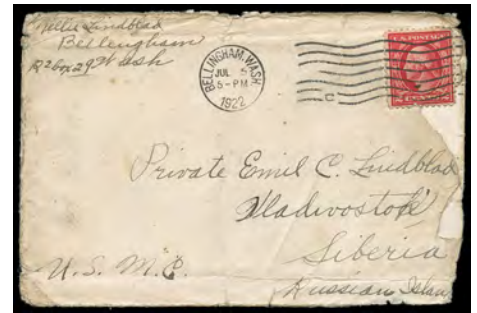 Nellie Lindblad
Bellingham
R2 Bx 29 Wash
BELLINGHAM, WASH.
JUL 5
5-PM
1922
U.S. POSTAGE
Private Emil C. Lindblad
Vladivostok
Siberia
U. S. M. C.
Russian Islan